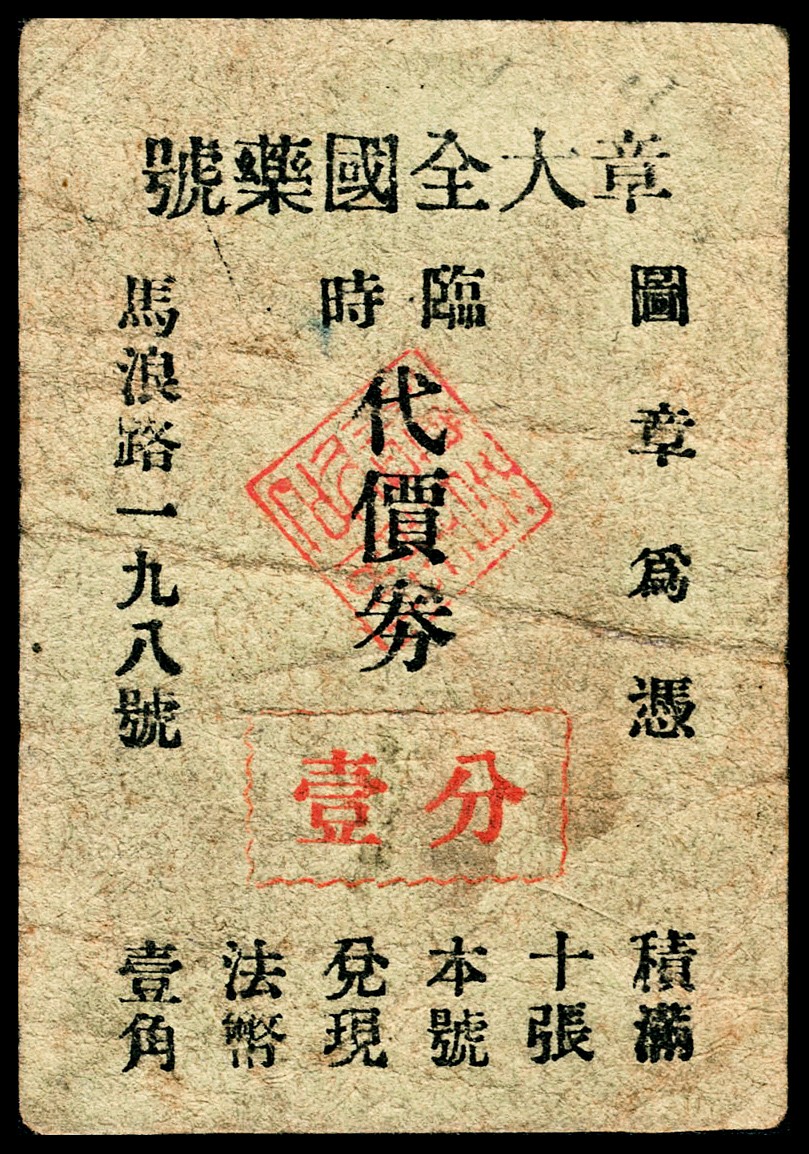 章大全國藥號
圖章爲憑
臨時
代價劵
壹分
馬浪路一九八號
積滿
十張
本號
兌現
法幣
壹角